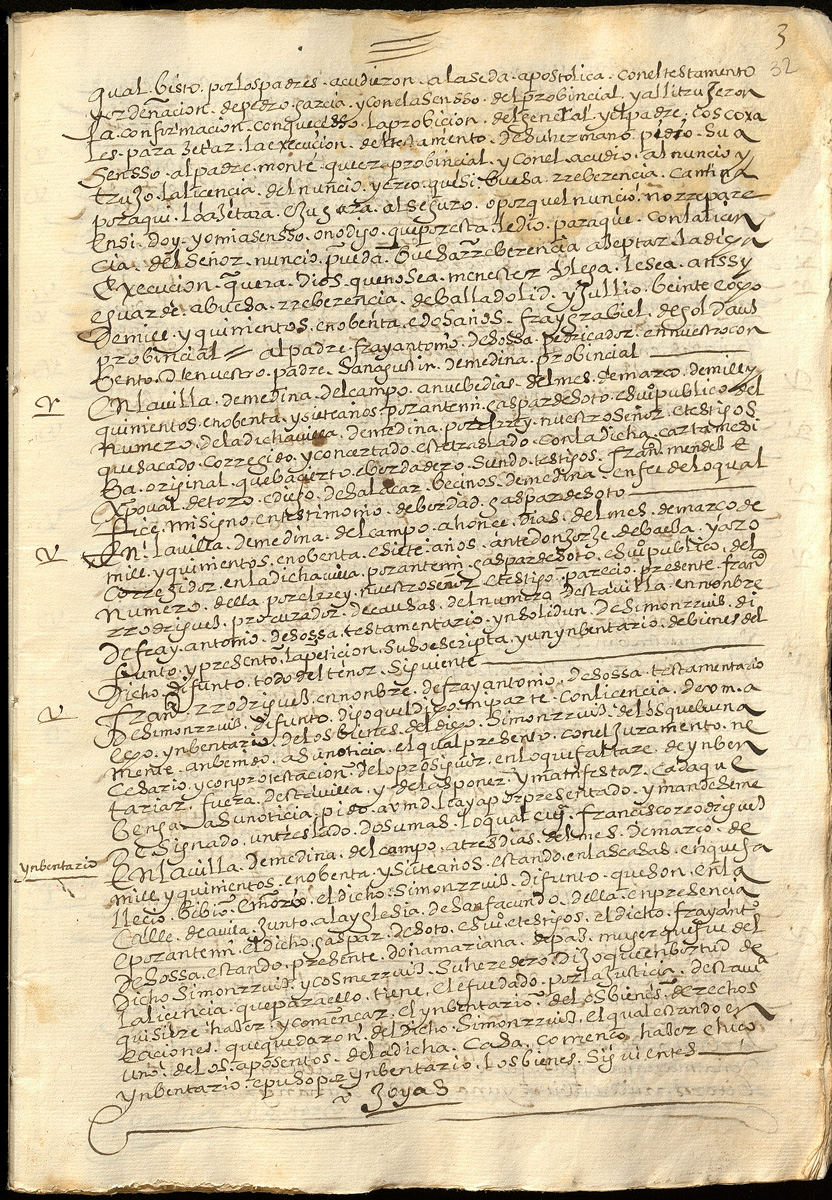 3
32
qual. bisto. por los padres. acudieron. a la seda. apostolica. con el testamento
y ordenacion. de pedro. garcia. y con el asensso. del probincial. y alli truxeron
la. confirmacion. con que cesso. la probicion. del general. y el padre. cos coxa
les. para. zetar. la execucion. del testamento. de su hermano. pedro. su a
sensso. al padre. monte. que era. probincial. y con el. acudio. al nuncio y
truxo. la licencia. del nuncio. y creo. que si. buesa. rreberencia. camina
por aqui. lo açetara. e jugara. al seguro. o porque el nuncio. no rrepare
en si. doy. yo mi asensso. o no digo. que por esta. le dio. para que. con la licen
cia. del señor. nuncio. pueda. buesa rreberencia açeptar. la dicha
execucion. quiera. dios. que no sea. menester y lega. le sea. anssy
e guarde. a buesa. rreberencia. de balladolid. y jullio. beinte e ocho
de mill. y quinientos. e nobenta. e dos años. fray grabiel. de goldaus
probincial = al padre. fray antonio. de sossa. pedricador. en nuestro con
bento. de nuestro. padre. san agustin. de medina. probincial
En la villa. de medina. del campo. a nuebe dias. del mes. de março. de mill y
quinientos. e nobenta. y siete años. por ante mi. gaspar de soto. escriuo publico. del
numero. de la dicha villa. de medina. por el rrey. nuestro señor. e testigos
que sacado. corregido. y concertado. este traslado. con la dicha. carta medi
ba. original. que ba cierto. e berdadero. siendo. testigos. francisco mendes e
xpoual. de toro. e diego. de salaçar. becinos. de medina. en fee. de lo qual
fice. mi signo. en testimonio. de berdad. gaspar de soto
En. la villa. de medina. del campo. a honce. dias. del mes. de março de
mill. y quinientos. e nobenta. e siete. años. ante don jorze. de baeça. y aro
corregidor. en la dicha villa. por ante mi. gaspar de soto. escriuo publico. del
numero. della por el rrey. nuestro señor. e testigos. parecio. presente. franco
rrodrigues. procurador. de causas. del numero desta villa. en nonbre
de fray. antonio. de sossa. testamentario. yn solidun. de simon rruiz. di
funto. y presento. la peticion. suso escripta. y un ynbentario. de bienes del
dicho. difunto. todo del tenor. siguiente
Franco. rrodrigues. en nonbre. de fray antonio. de sossa. testamentario
de simon rruiz. difunto. digo que el dicho. mi parte. con licencia. de v. m. a
echo. ynbentario. de los bienes. del dicho. simon rruiz. de los que buena
mente. an benido. a su noticia. el qual presento. con el juramento. ne
cesario. y con protestacion. de lo proseguir. en lo que faltare. de ynben
tariar. fuera. desta villa. y de las poner. y manifestar. cada que
bengan. a su noticia. pido. a v md. le aya por presentado. y mande se me
de signado. un treslado. dos u mas. lo qual etc. francisco rrodrigues
ynbentario
En la villa. de medina. del campo. a tres dias. del mes. de março. de
mill. y quinientos. e nobenta. y siete años. estando. en las casas. en que fa
llecio. bibio. e morio. el dicho. simon rruiz. difunto. que son. en la
calle. de auila. junto. a la yglesia. de san facundo. della. en presencia
e por ante mi. el dicho. gaspar. de soto. escriuo. e testigos. el dicho. fray anto
de sossa. estando. presente. doña mariana. de paz. muger que fue del
dicho. simon rruiz. y cosme rruiz. su heredero. dixo que en birtud de
la licencia. que para ello. tiene. e le fue dado. por la justicia. desta uilla
quisiere hazer. y començar. el ynbentario. de los bienes. derechos
e aciones. que quedaron. del dicho. simon rruiz. el qual estando en
uno. de los. aposentos. de la dicha. casa. començo. hazer e hiço
ynbentario. e puso por ynbentario. los bienes. siguientes
joyas